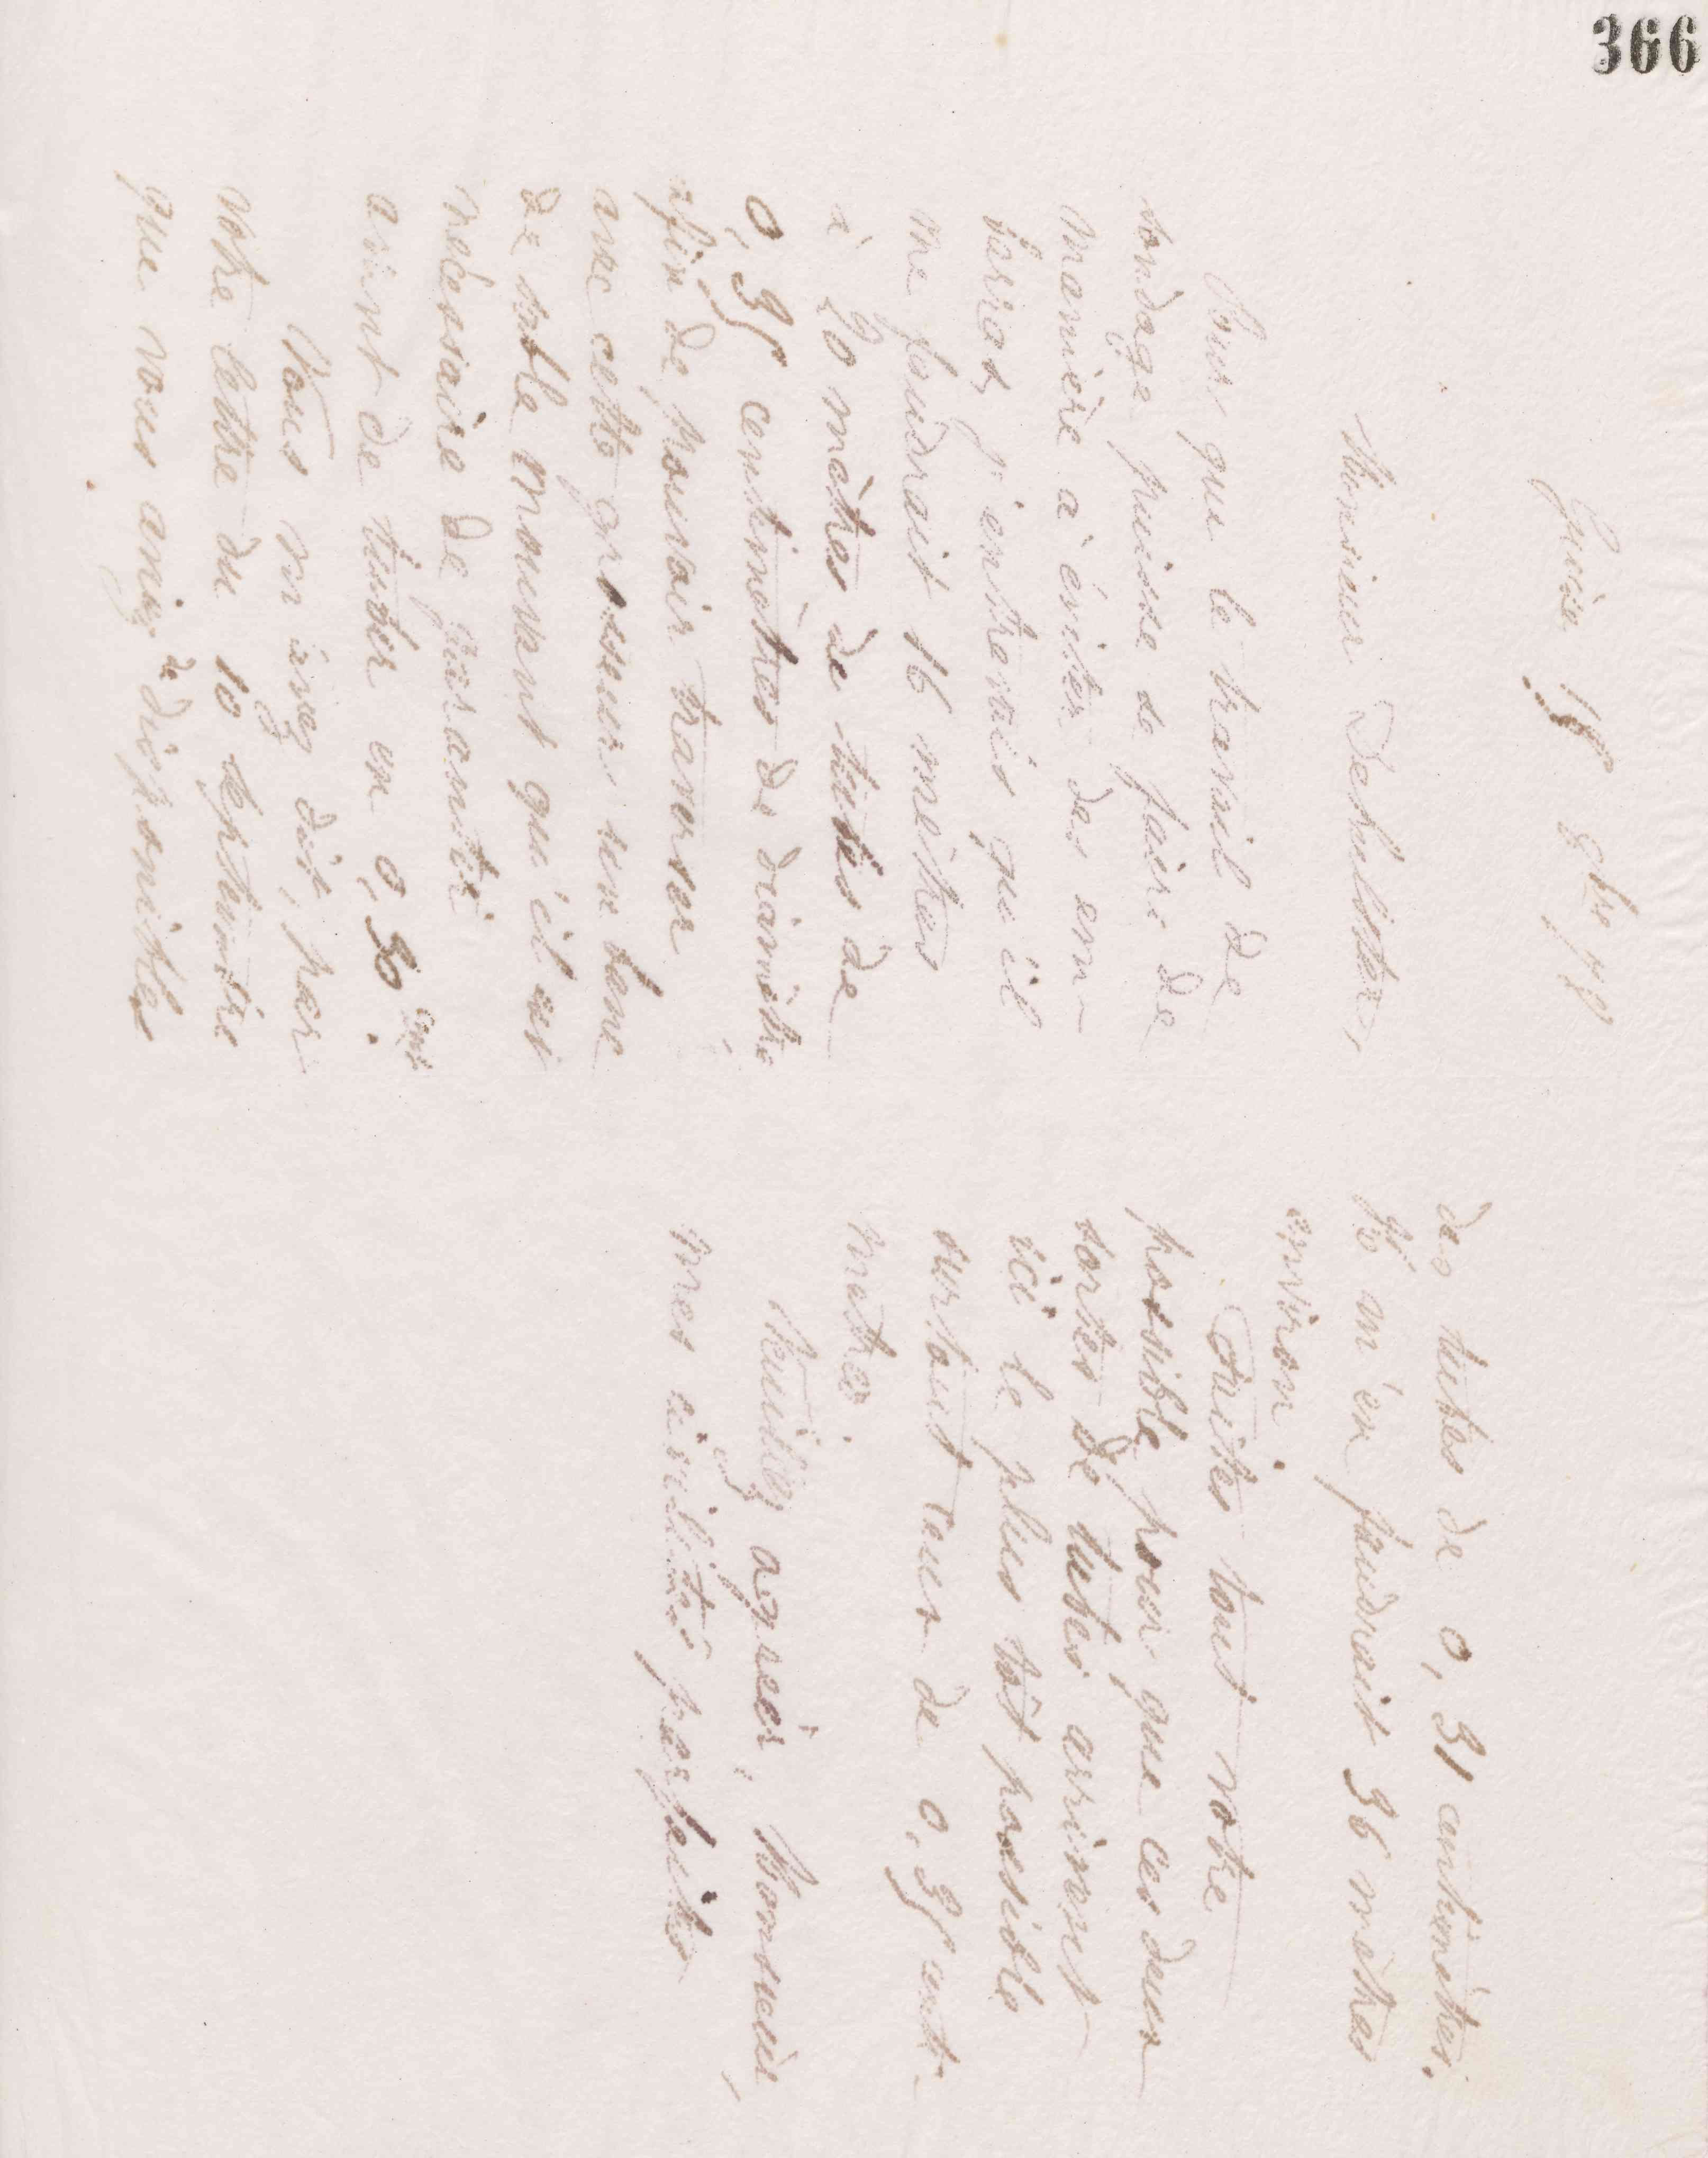 366
Guise 15 9bre 78
Monsieur Dehulster,
Pour que le travail de
sondage puisse se faire de
manière à éviter des em-
barras, j'entrevois qu'il
me faudrait 16 mètres
à 20 mètres de tubes de
0,35 centimètres de diamètre,
afin de pouvoir traverser
avec cette grosseur un banc
de sable mouvant qu'il est
nécessaire de garantir
avant de tuber en 0,30 cent.
Vous m'avez dit, par
votre lettre du 10 septembre
que vous aviez de disponibles
des tubes de 0,31 centimètres.
Il m'en faudrait 36 mètres
environ.
Faites tout votre
possible pour que ces deux
sortes de tubes arrivent
ici le plus tôt possible
surtout ceux de 0,35 centi-
mètres.
Veuillez agréer, Monsieur,
mes civilités parfaites